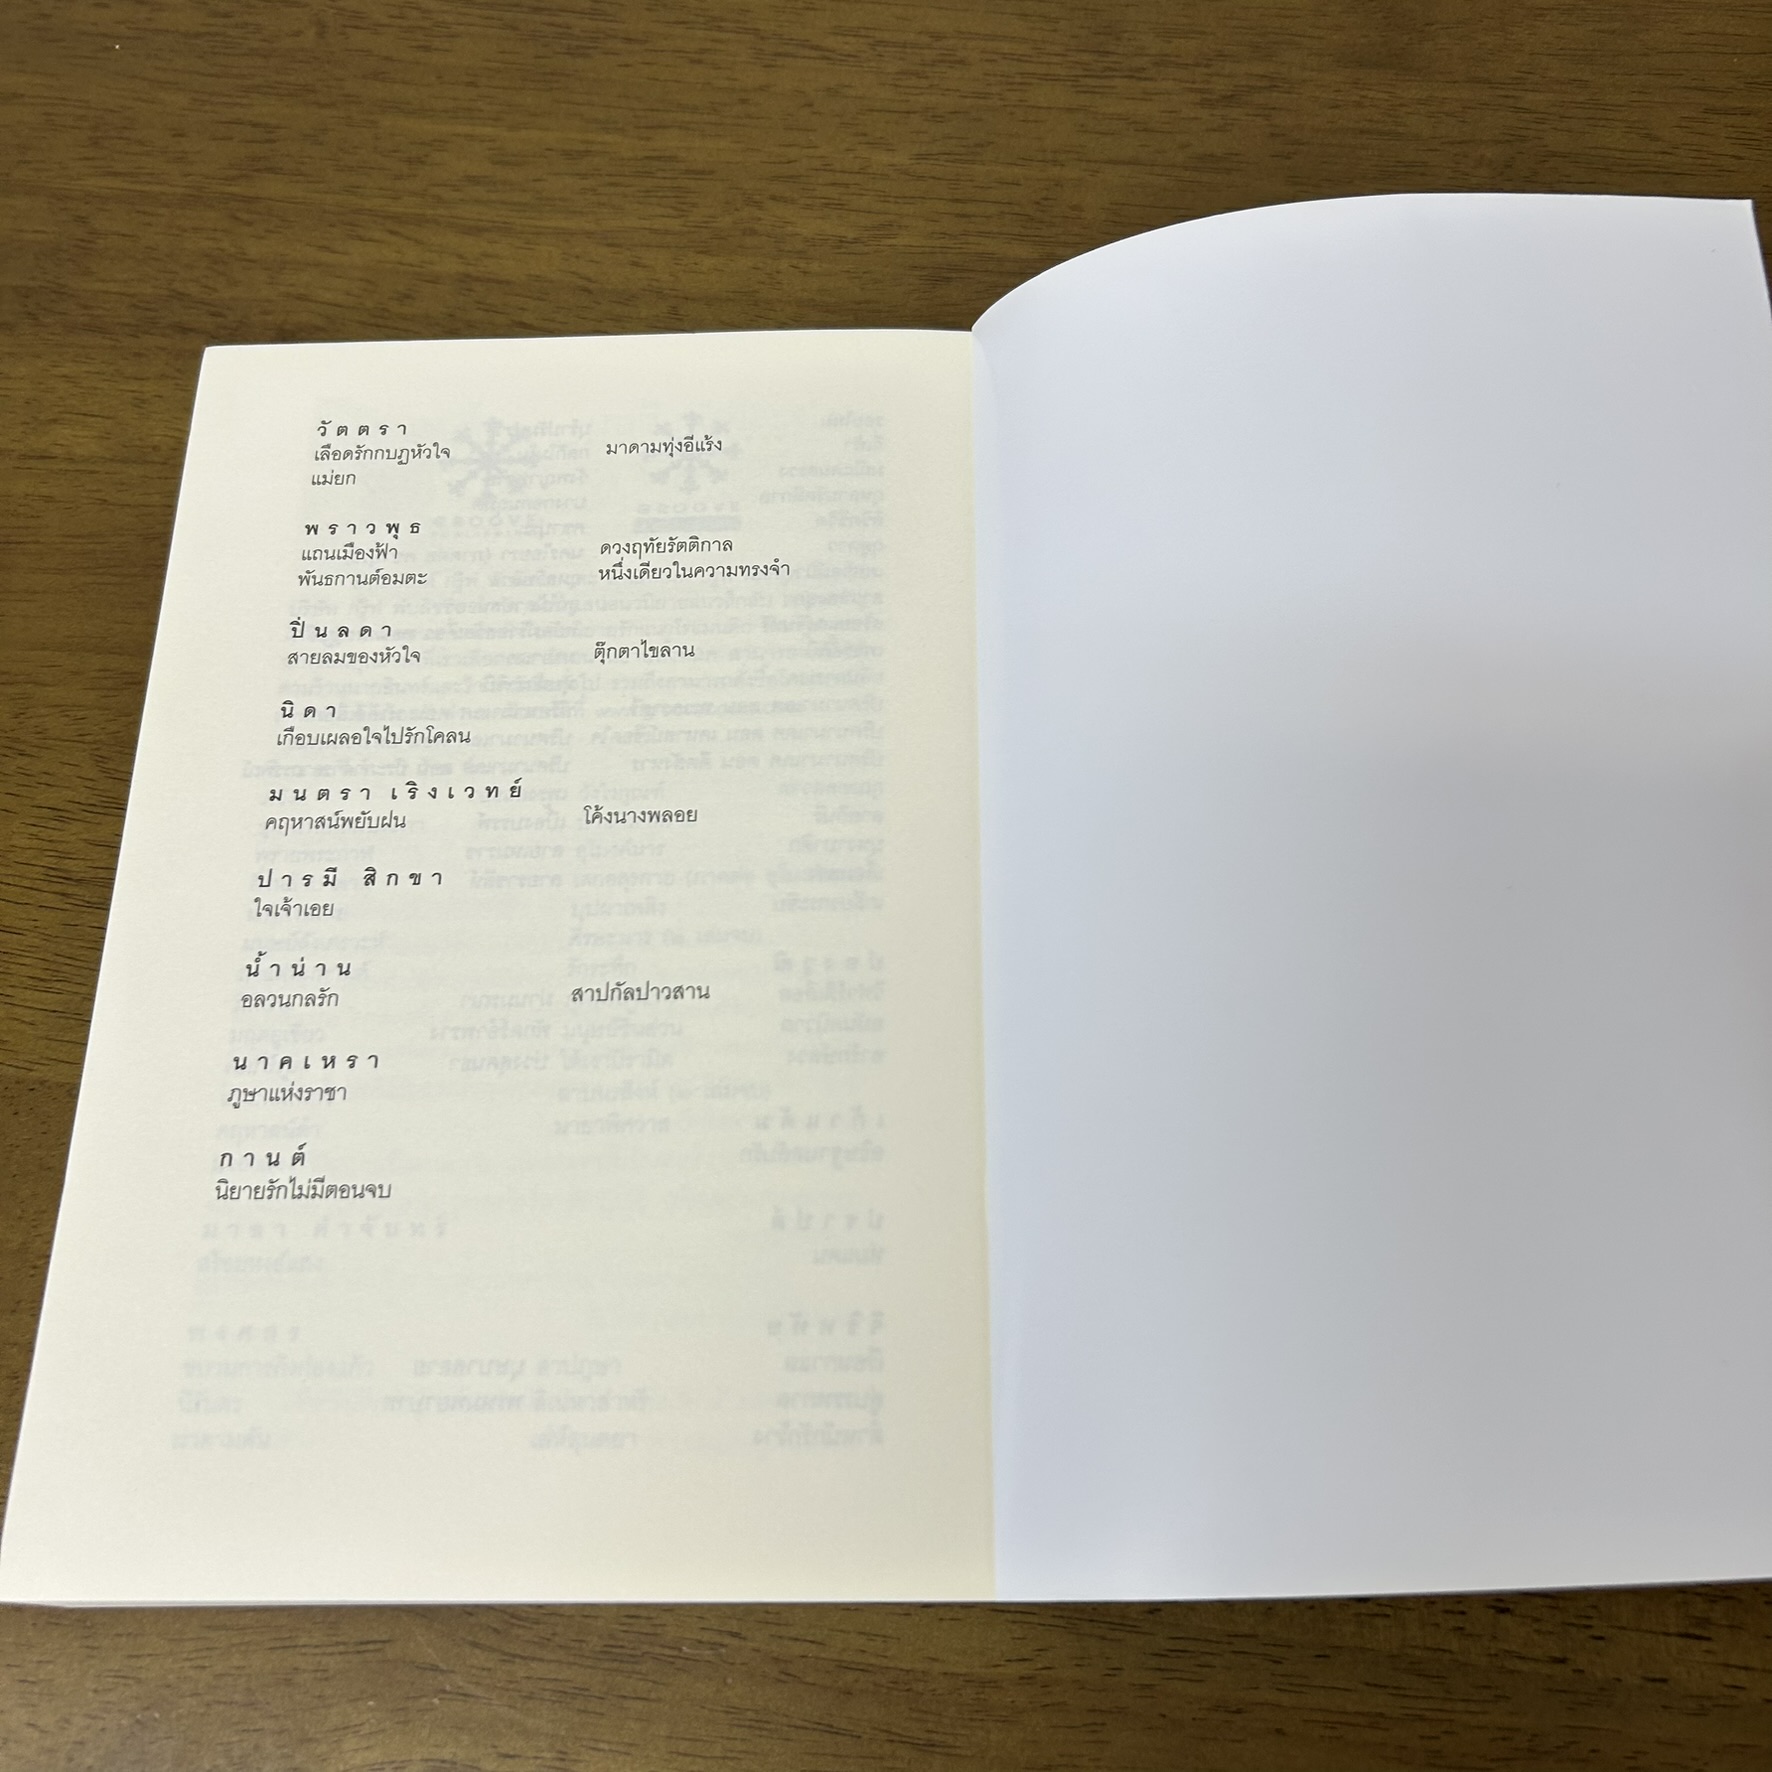 วัตตรา
เลือดรักกบฏหัวใจ มาดามทุ่งอีแร้ง
แม่ยก
พราวพุธ
แถนเมืองฟ้า ดวงฤทัยรัตติกาล
พันธกานต์อมตะ หนึ่งเดียวในความทรงจำ
ปิ่นลดา
สายลมของหัวใจ ตุ๊กตาไขลาน
นิดา
เกือบเผลอใจไปรักโคลน
มนตรา เริงเวทย์
คฤหาสน์พยับฝน โค้งนางพลอย
ปารมี สิกขา
ใจเจ้าเอย
น้ำน่าน
อลวนกลรัก สาปกัลปาวสาน
นาคเหรา
ภูษาแห่งราชา
กานต์
นิยายรักไม่มีตอนจบ